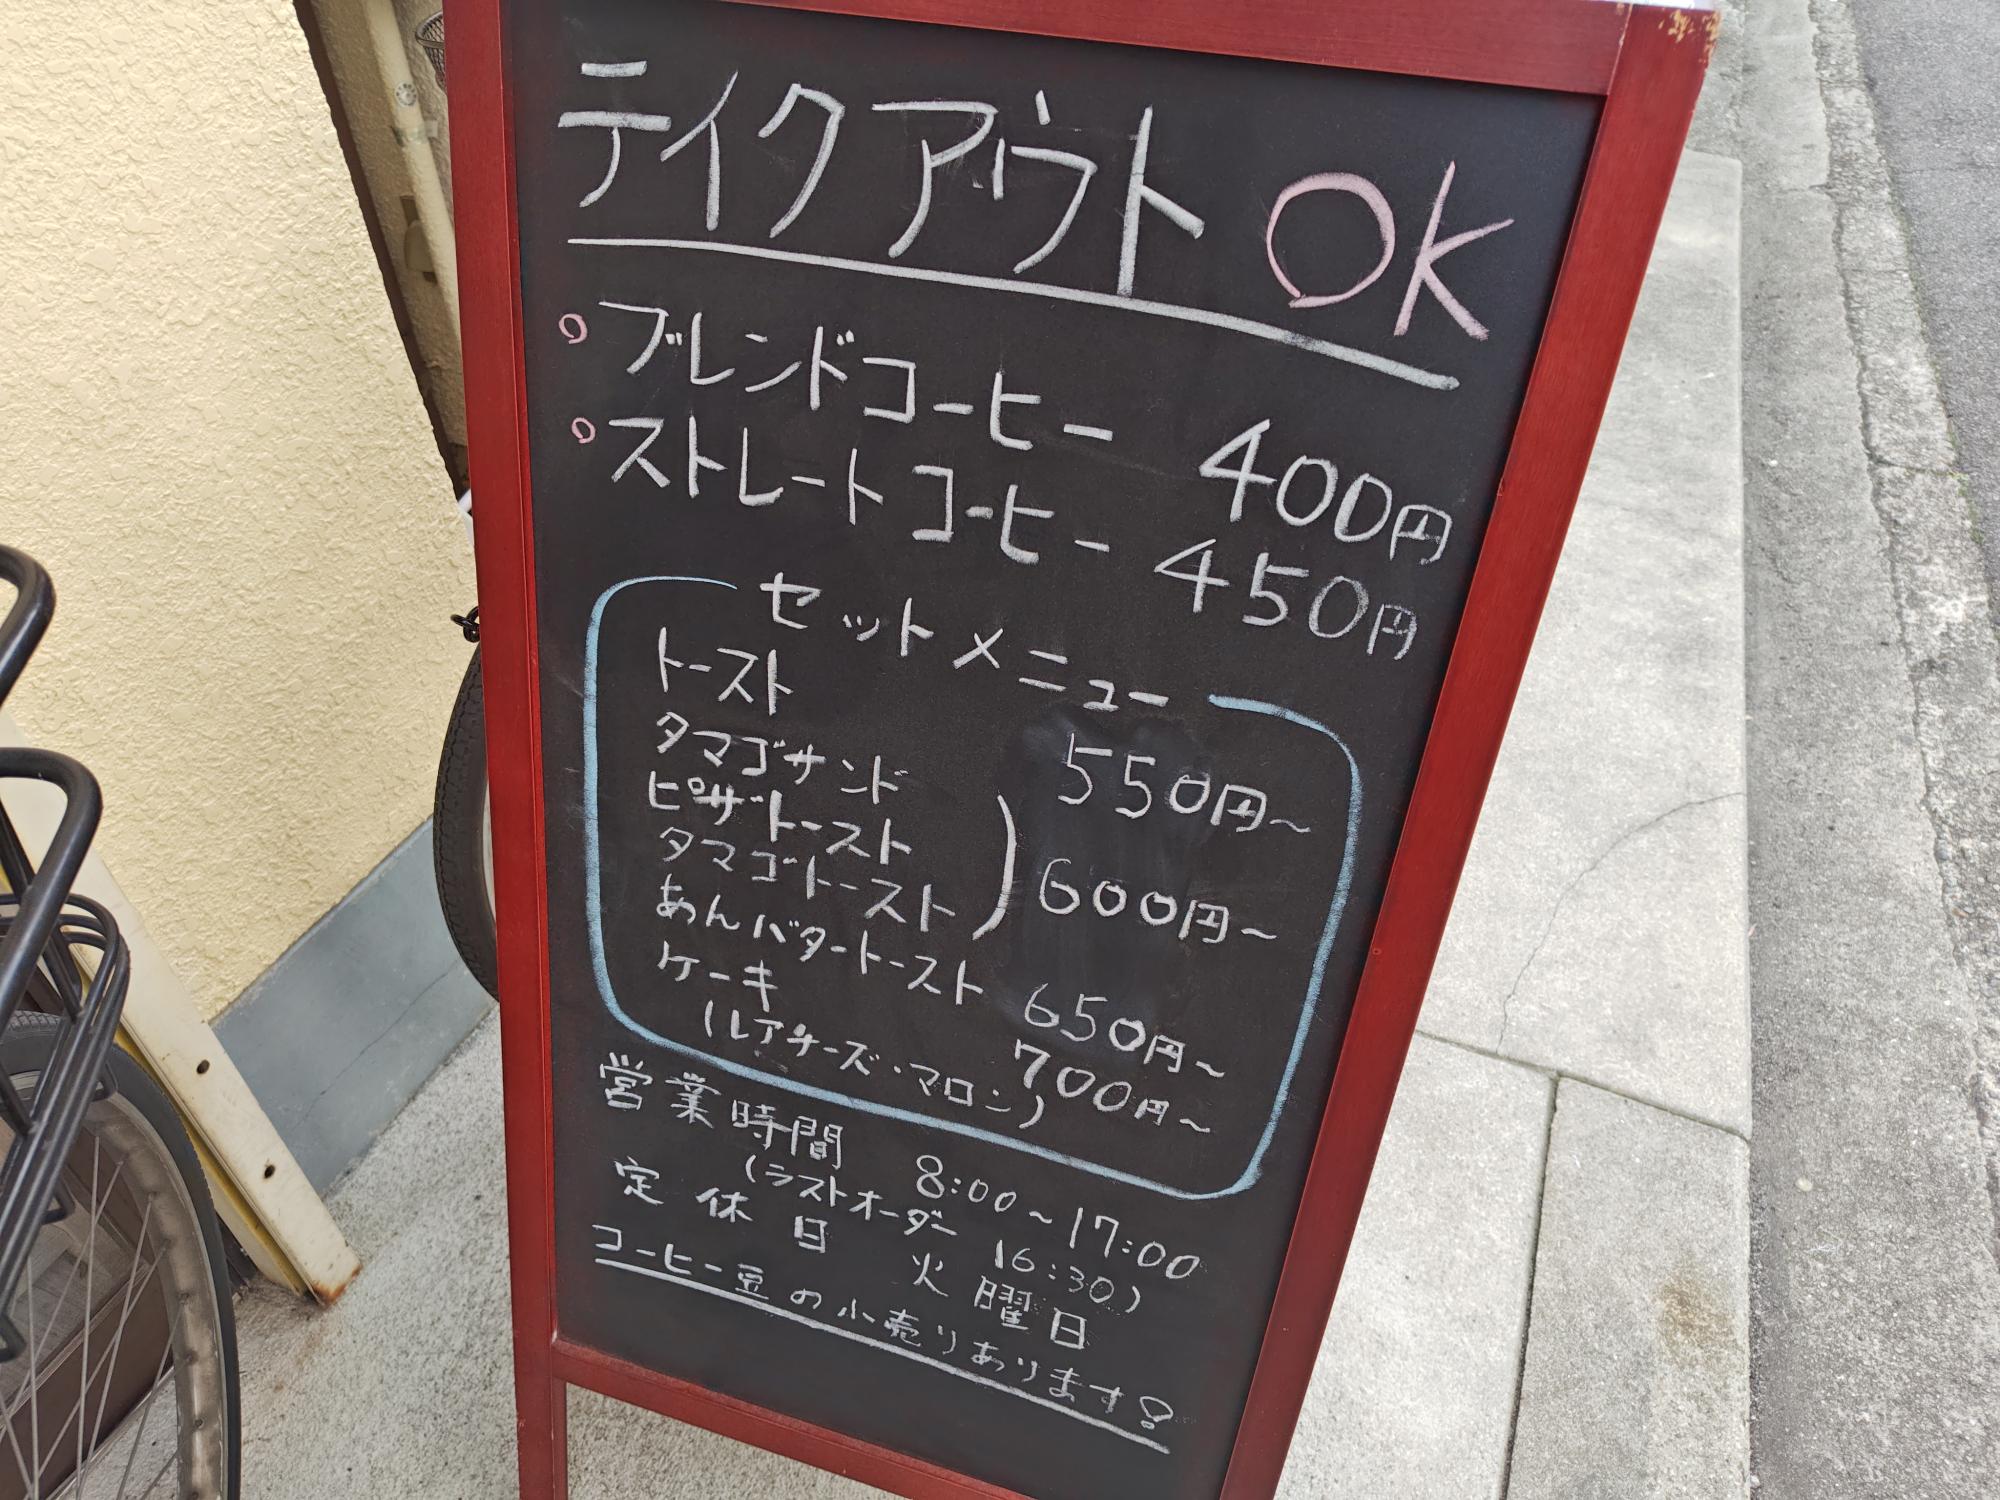 テイクアウト OK
○ブレンドコーヒー 400円
○ストレートコーヒー 450円
セットメニュー
トースト 550円〜
タマゴサンド
ピザトースト
タマゴトースト
) 600円〜
あんバタートースト 650円〜
ケーキ 700円〜
(レアチーズ・マロン)
営業時間 8:00〜17:00
(ラストオーダー 16:30)
定休日 火曜日
コーヒー豆の小売りあります!